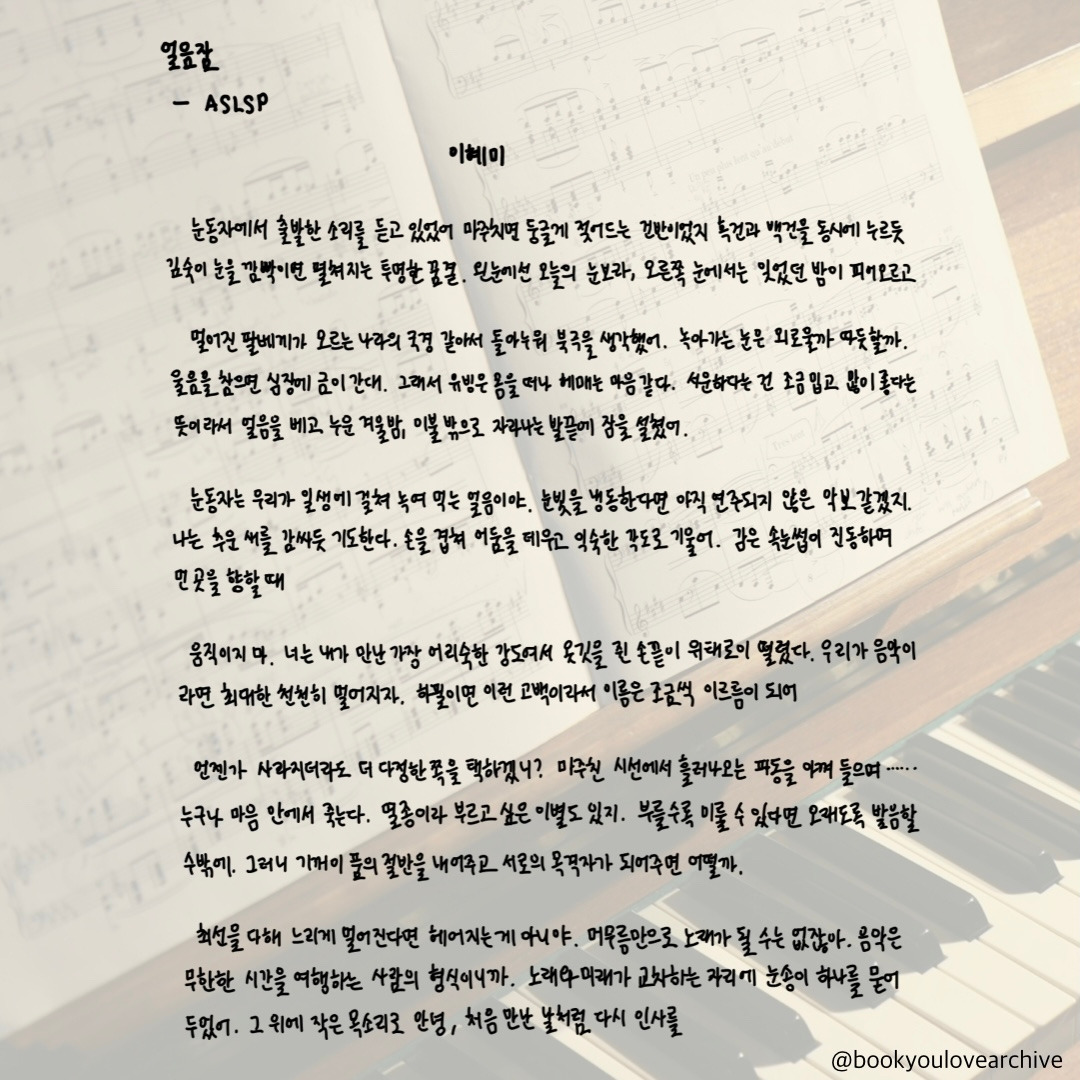 얼음잠
- ASLSP
이혜미
눈동자에서 출발한 소리를 듣고 있었어 마주치면 둥글게 젖어드는 건반이었지 흑건과 백건을 동시에 누르듯
깊숙이 눈을 깜빡이면 펼쳐지는 투명한 꿈결. 왼눈에선 오늘의 눈보라, 오른쪽 눈에서는 잊었던 밤이 피어오르고
멀어진 팔베개가 모르는 나라의 국경 같아서 돌아누워 북극을 생각했어. 녹아가는 눈은 외로울까 따듯할까.
울음을 참으면 심장에 금이 간대. 그래서 유빙은 몸을 떠나 헤매는 마음 같다. 서운하다는 건 조금 밉고 많이 좋다는
뜻이라서 얼음을 베고 누운 겨울밤, 이불 밖으로 자라나는 발끝에 잠을 설쳤어.
눈동자는 우리가 일생에 걸쳐 녹여 먹는 얼음이야. 눈빛을 냉동한다면 아직 연주되지 않은 악보 같겠지.
나는 추운 새를 감싸듯 기도한다. 손을 겹쳐 어둠을 데우고 익숙한 각도로 기울어. 감은 속눈썹이 진동하며
먼 곳을 향할 때
움직이지 마. 너는 내가 만난 가장 어리숙한 강도여서 옷깃을 쥔 손끝이 위태로이 떨렸다. 우리가 음악이
라면 최대한 천천히 멀어지자. 하필이면 이런 고백이라서 이름은 조금씩 이르름이 되어
언젠가 사라지더라도 더 다정한 쪽을 택하겠니? 마주친 시선에서 흘러나오는 파동을 아껴 들으며……
누구나 마음 안에서 죽는다. 멸종이라 부르고 싶은 이별도 있지. 부를수록 미룰 수 있다면 오래도록 발음할
수밖에. 그러니 기꺼이 품의 절반을 내어주고 서로의 목격자가 되어주면 어떨까.
최선을 다해 느리게 멀어진다면 헤어지는 게 아니야. 머무름만으로 노래가 될 수는 없잖아. 음악은
무한한 시간을 여행하는 사람의 형식이니까. 노래와 미래가 교차하는 자리에 눈송이 하나를 묻어
두었어. 그 위에 작은 목소리로 안녕, 처음 만난 날처럼 다시 인사를
@bookyoulovearchive